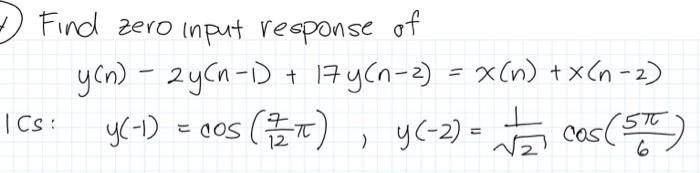 ) Find zero input response of
y(n) - 2y(n-1) + 17y(n-2) = x(n) + x(n-2)
ICs: y(-1) = cos(7/12 π), y(-2) = 1/√2 cos(5π/6)